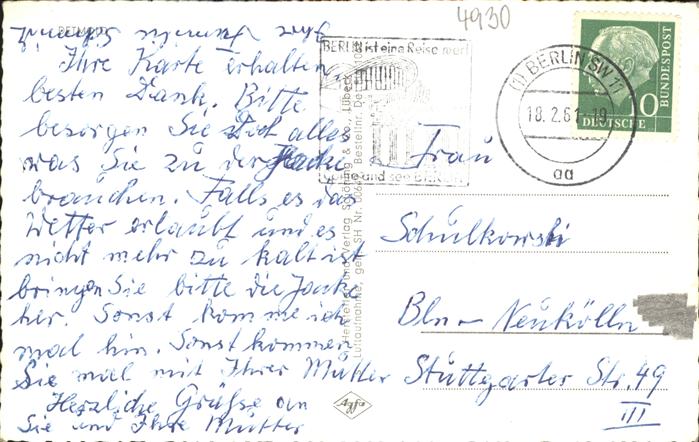 4930
Ihre Karte erhalten,
besten Dank. Bitte
besorgen Sie sich alles
was Sie zu der Jacke
brauchen. Falls es das
Wetter erlaubt und es
nicht mehr zu kalt ist
bringen Sie bitte die Jacke
her. Sonst komme ich
mal hin. Sonst kommen
Sie mal mit Ihrer Mutter
Herzliche Grüße an
Sie und Ihre Mutter
Ihre Familie
BERLIN ist eine Reise wert
come and see BERLIN
(1) BERLIN SW 11
18.2.61-19
aa
DEUTSCHE
BUNDESPOST
Frau
Schulkowski
Bln-Neukölln
Stuttgarter Str. 49
III
Herstellung und Verlag Schöning & Co., Lübeck
Luftaufnahme, SH Nr. Bestellnr.
Agfa